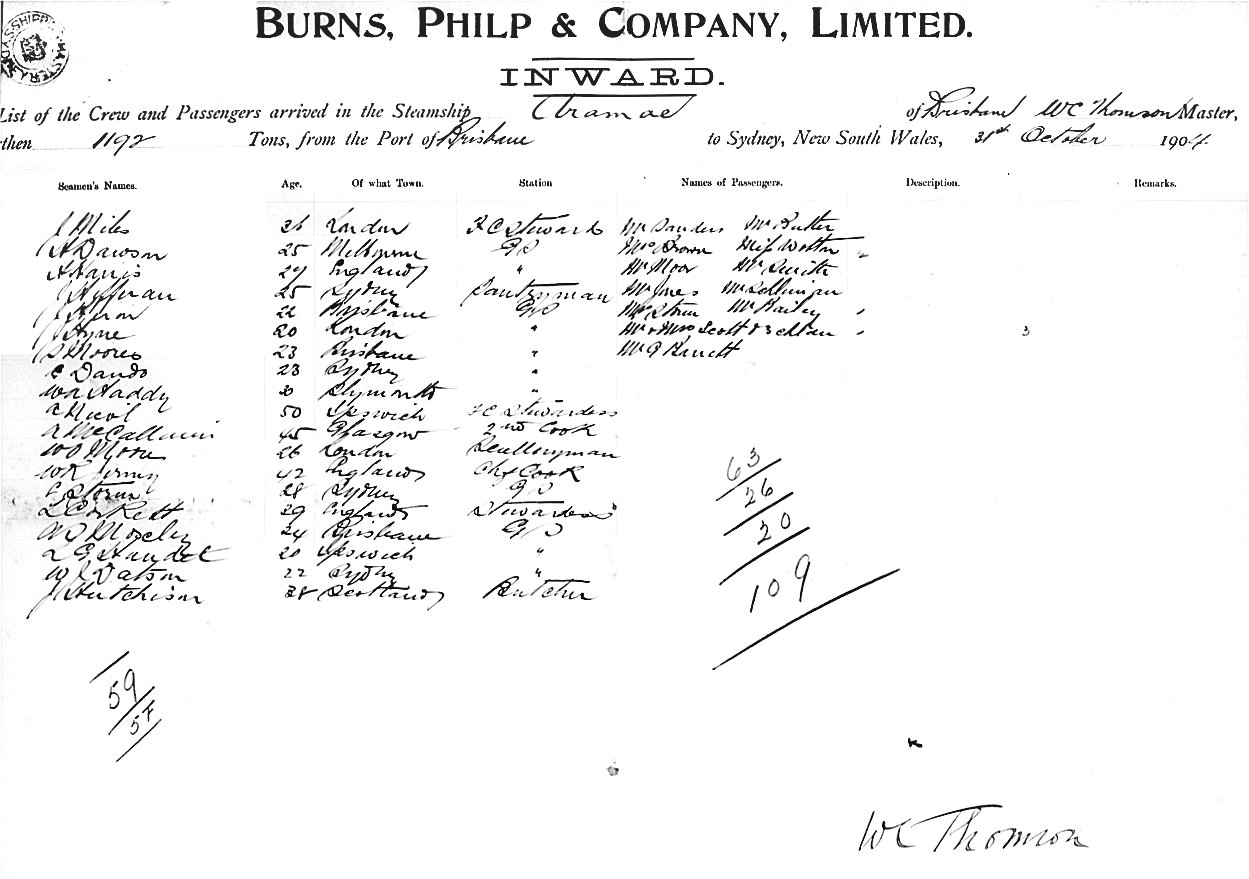 BURNS, PHILP & COMPANY, LIMITED.
INWARD.
List of the Crew and Passengers arrived in the Steamship Aramac of Brisbane WC Thomson Master,
then 1192 Tons, from the Port of Brisbane to Sydney, New South Wales, 31st October 1904.
Seamen's Names. Age. Of what Town. Station Names of Passengers. Description. Remarks.
J Miles 26 London F C Steward Mr Sanders Mr Rutter
H Dawson 25 Melbourne GS Mrs Brown Miss
A Harris 29 England " Mr Moor Mr Smith
J Heffernan 25 Sydney Pantryman Mr Jones Mr
J 22 Brisbane GS Storm Mr Bailey
J Hyne 20 London " Mr & Mrs Scott & 3 chldn 3
S Moores 23 Brisbane " Mr G Barrett
C Dando 23 Sydney "
WR Haddy Plymouth "
A Nicol 50 Ipswich F C Stewardess
A McCallum 45 Glasgow 2nd Cook
WO Moore 26 London Sculleryman
WR 42 England Chf Cook
Storm 28 Sydney GS
L Corkett 29 England Stewardess
Moseley 24 Brisbane GS
L G Handel 20 Ipswich "
W J Watson 22 Sydney "
J Hutchison 28 Scotland Butcher
63
26
20
109
59
57
WC Thomson